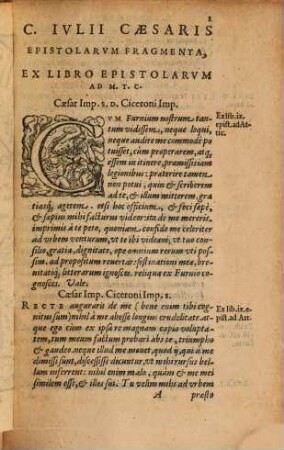 1
C. IVLII CÆSARIS
EPISTOLARVM FRAGMENTA,
EX LIBRO EPISTOLARVM
AD M. T. C.
Cæsar Imp. S. D. Ciceroni Imp.
CVM Furnium nostrum tan-
tum vidissem, neque loqui,
neque audire meo commodo po
tuissem, cùm properarem, atq́;
essem in itinere, præmissis iam
legionibus: præterire tamen
non potui, quin & scriberem
ad te, & illum mitterem, gra-
tiasq́; agerem. etsi hoc officium, & feci sæpè,
& sæpius mihi facturus videor: ita de me mereris.
imprimis à te peto, quoniam confido me celeriter
ad vrbem venturum, vt te ibi videam, vt tuo con-
silio, gratia, dignitate, ope omnium rerum vti pos-
sim. ad propositum reuertar: festinationi meæ, bre-
uitatiq́; litterarum ignosces. reliqua ex Furnio co-
gnosces. Vale.
Ex lib. ix.
epist. ad At-
tic.
Cæsar Imp. Ciceroni Imp. S.
RECTE auguraris de me (bene enim tibi co-
gnitus sum) nihil à me abesse longius crudelitate. at-
que ego cùm ex ipsa re magnam capio volupta-
tem, tum meum factum probari abs te, triumpho
& gaudeo. neque illud me mouet, quod ij, qui à me
dimissi sunt, discessisse dicuntur, vt mihi rursus bel-
lum inferrent: nihil enim malo, quàm & me mei
similem esse, & illos sui. Tu velim mihi ad vrbem
Ex lib. ix. e-
pist. ad Att.
A præsto